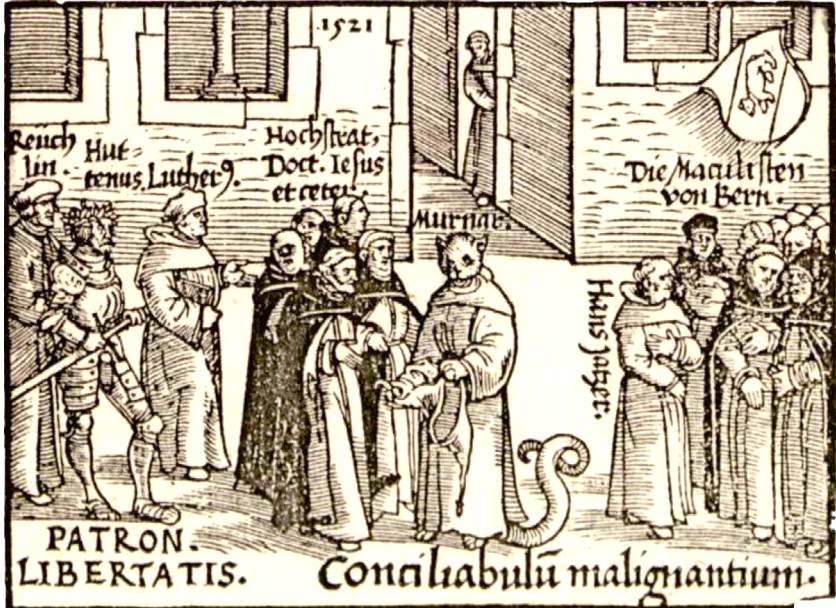 1521
Reuch
lin.
Hut
tenus. Luther9.
Hochstrat,
Doct. Iesus
et ceter.
Murnar.
Die Maculisten
von Bern.
Hans Jatzer.
PATRON.
LIBERTATIS.
Conciliabulū malignantium.